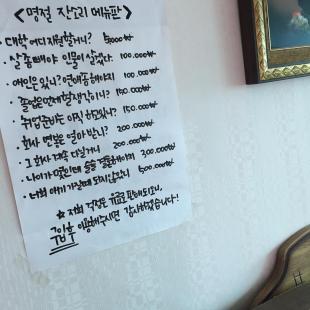 <명절 잔소리 메뉴판>
· 대학 어디 지원할거니? 50,000₩
· 살 좀 빼야 인물이 살겠다. 100.000₩
· 애인은 있니? 연애 좀 해야지 100.000₩
· 졸업은 언제 할 생각이니? 150.000₩
· 취업준비는 아직 하고있니? 150.000₩
· 회사 연봉은 얼마 받니? 200.000₩
· 그 회사 계속 다닐거니? 200.000₩
· 나이가 몇인데 슬슬 결혼해야지 300.000₩
· 너희 애기 가질때 되지않았니 500.000₩
★ 저희 걱정은 유료로 판매되오니,
구입 후 이용해주시면 감사하겠습니다!